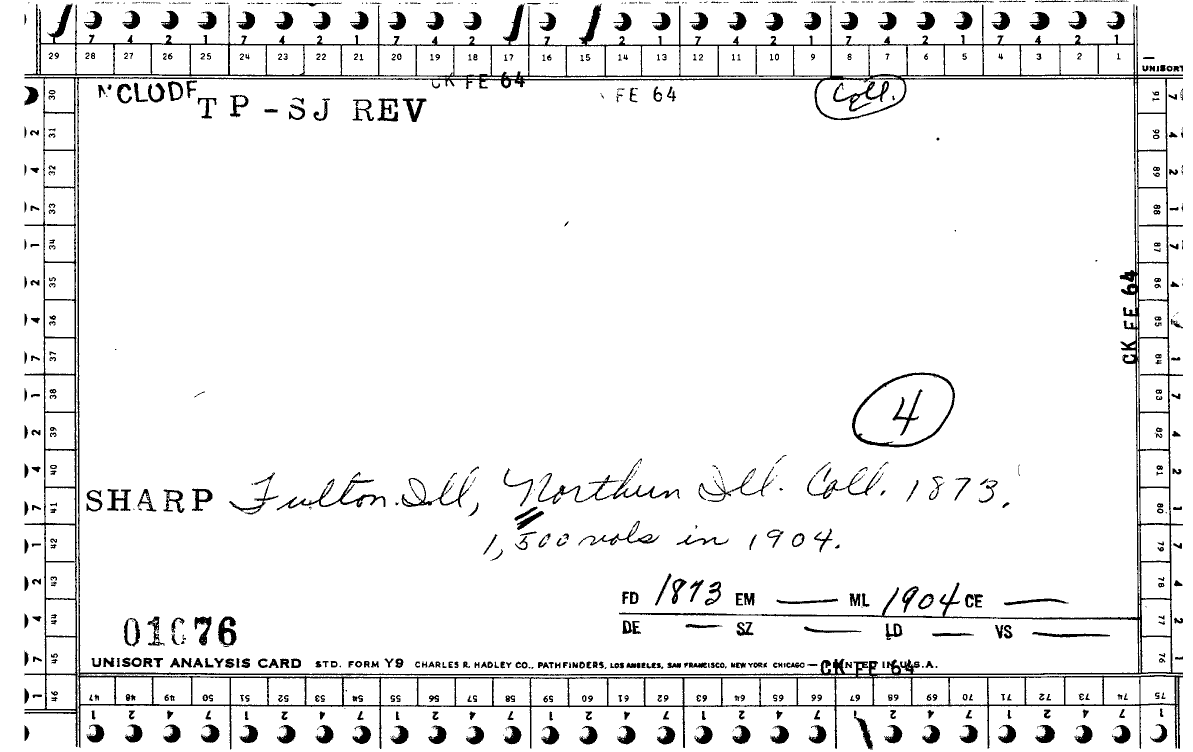 7 4 2 1 7 4 2 1 7 4 2 7 2 1 7 4 2 1 7 4 2 1 7 4 2 1
29 28 27 26 25 24 23 22 21 20 19 18 17 16 15 14 13 12 11 10 9 8 7 6 5 4 3 2 1
UNISORT
CK FE 64
FE 64
Coll.
TP-SJ REV
30 31 32 33 34 35 36 37 38 39 40 41 42 43 44 45 46
91 90 89 88 87 86 85 84 83 82 81 80 79 78 77 76 75
CK FE 64
4
SHARP Fulton Ill, Northern Ill. Coll. 1873.
1,500 vols in 1904.
FD 1873 EM — ML 1904 CE —
DE — SZ — LD — VS —
01676
UNISORT ANALYSIS CARD STD. FORM Y9 CHARLES R. HADLEY CO., PATHFINDERS, LOS ANGELES, SAN FRANCISCO, NEW YORK CHICAGO — PRINTED IN U.S.A.
CK FE 64
47 48 49 50 51 52 53 54 55 56 57 58 59 60 61 62 63 64 65 66 67 68 69 70 71 72 73 74